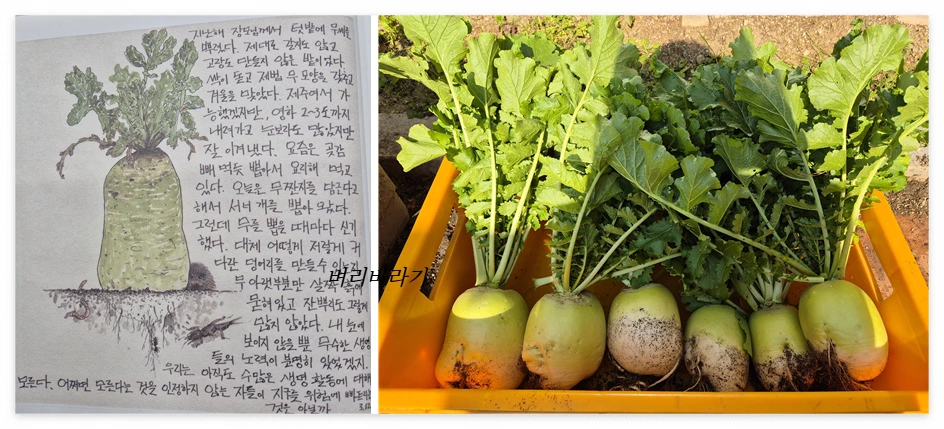 지난해 장모님께서 텃밭에 무씨를
뿌렸다. 제대로 갈지도 않고
고랑도 만들지 않은 밭이었다.
싹이 돋고 제법 무 모양을 갖추고
겨울을 맞았다. 제주여서 가
능했겠지만, 영하 2~3도까지
내려가고 눈보라도 맞았지만
잘 이겨냈다. 요즘은 곶감
빼 먹듯 뽑아서 요리해 먹고
있다. 오늘은 무짠지를 담근다고
해서 서너 개를 뽑아 왔다.
그런데 무를 뽑을 때마다 신기
했다. 대체 어떻게 저렇게 커
다란 덩어리를 만들 수 있는지
벼리바라기
무 아랫부분만 살짝
묻혀 있고 잔뿌리도 그렇게
많지 않았다. 내 눈에
보이지 않을 뿐 무수한 생명
들의 노력이 분명히 있었겠지.
우리는 아직도 수많은 생명 활동에 대해
모른다. 어쩌면 모른다는 것을 인정하지 않는 자들이 지구를 위험에
것은 아닐까